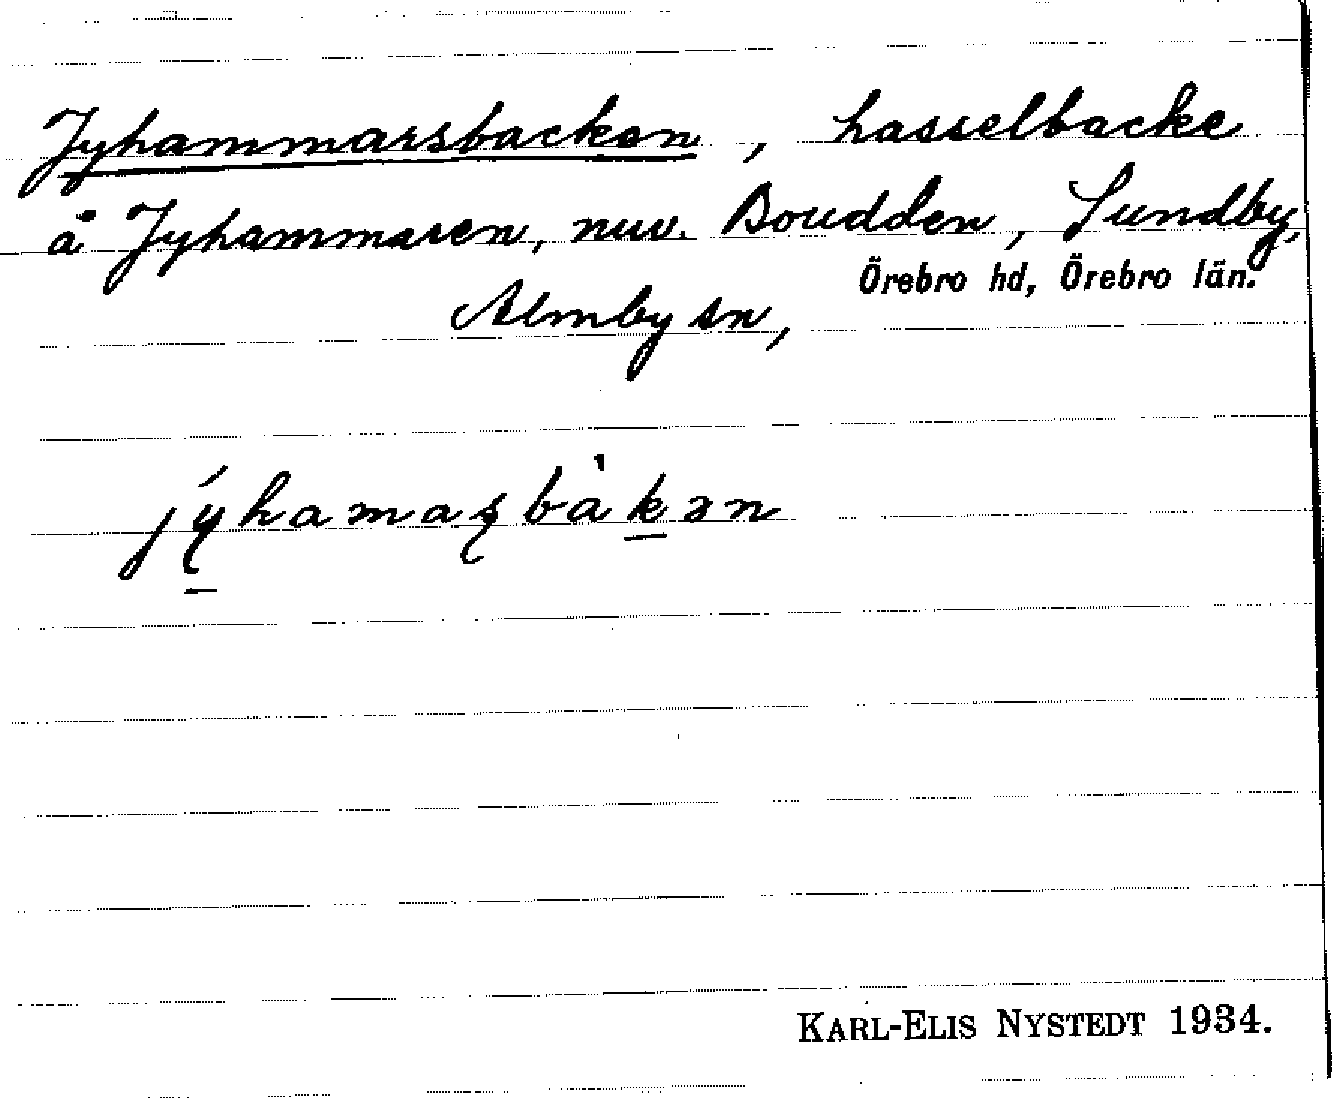 Jyhammarsbacken, hasselbacke
å Jyhammaren, nuv. Boudden, Sundby,
Örebro hd, Örebro län.
Almby sn,
jýhamaʂbàkən
KARL-ELIS NYSTEDT 1934.